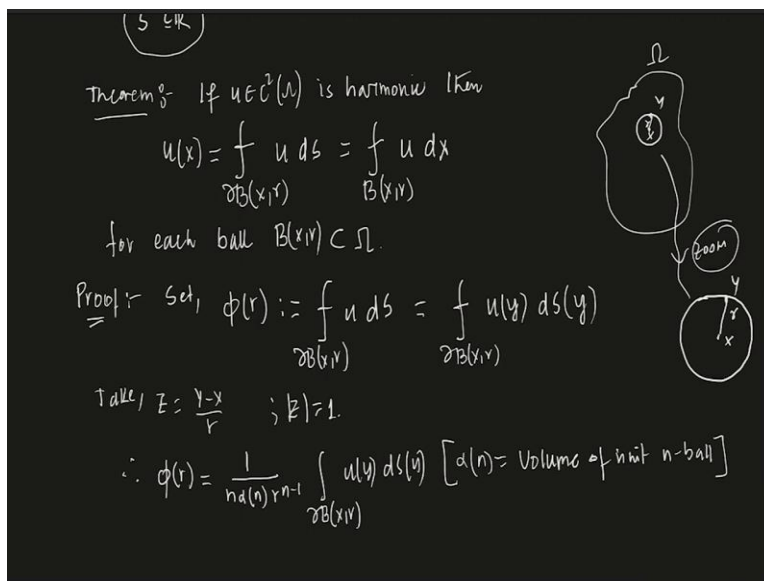 S ⊆ ℝ
Theorem:- If u∈C²(Ω) is harmonic then
u(x) = ⨍ u ds = ⨍ u dx
∂B(x,r) B(x,r)
for each ball B(x,r) ⊂ Ω.
Proof:- Set, ϕ(r) := ⨍ u ds = ⨍ u(y) ds(y)
∂B(x,r) ∂B(x,r)
Take, z = (y-x)/r ; |z|=1.
∴ ϕ(r) = 1/(nα(n) rⁿ⁻¹) ∫ u(y) ds(y) [α(n) = Volume of unit n-ball]
∂B(x,r)
Ω
y
x
ZOOM
y
r
x